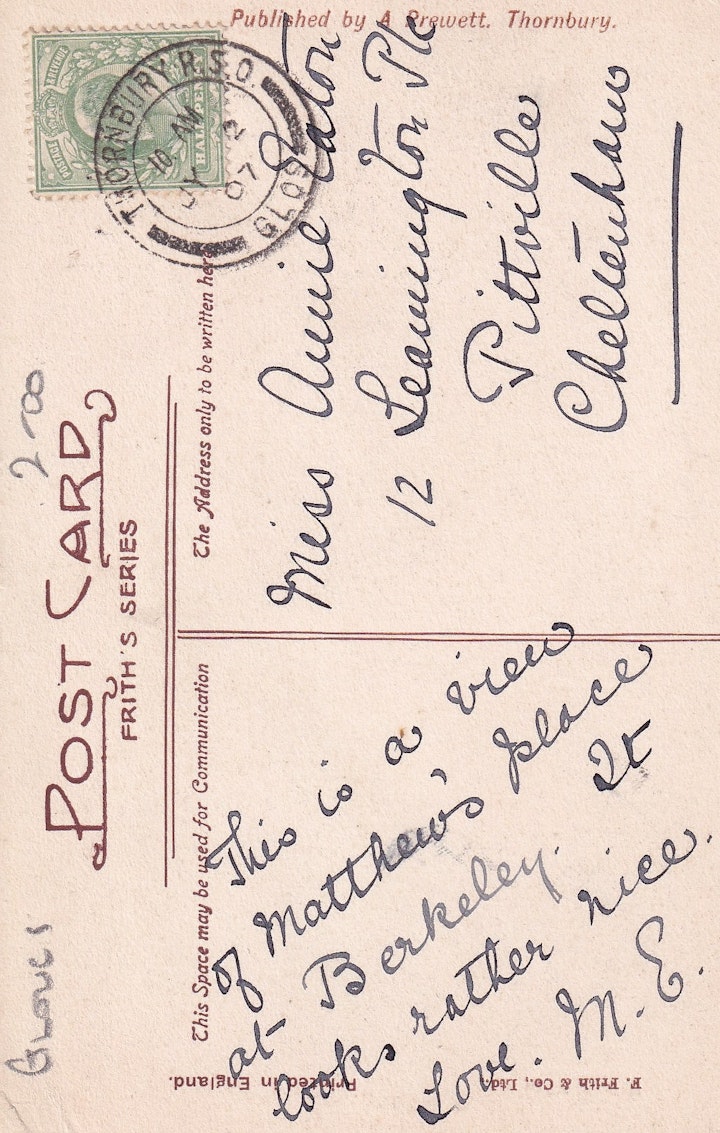 Published by A Prewett. Thornbury.
POSTAGE
REVENUE
HALFPENNY
THORNBURY R.S.O.
10 AM
JY 2
07
GLOS
2-00
POST CARD
FRITH'S SERIES
The Address only to be written here
Miss Annie Eaton
12 Leamington Plc
Pittville
Cheltenham
Glouc's
This Space may be used for Communication
This is a view
of Matthew's place
at Berkeley. It
looks rather nice.
Love. M. E.
Printed in England.
F. Frith & Co., Ltd.